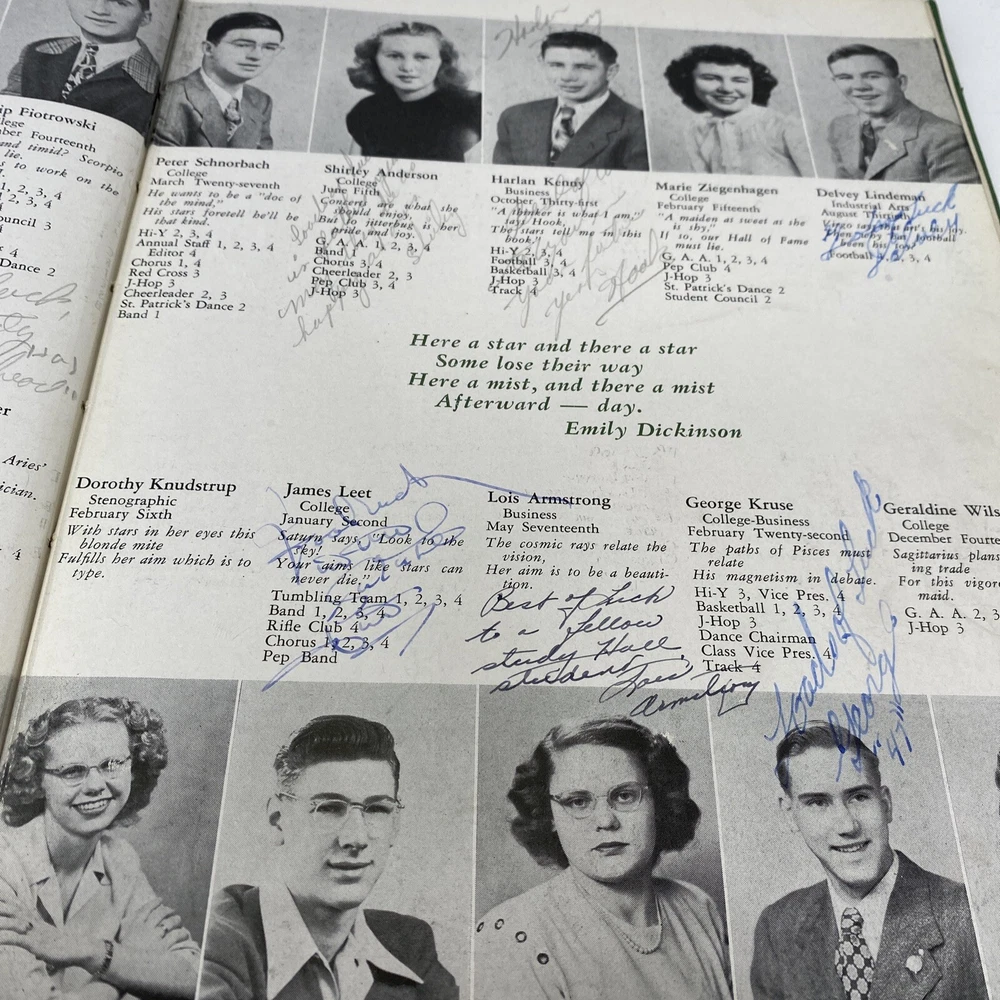 ip Fiotrowski
lege
ber Fourteenth
and timid? Scorpio
lie.
s to work on the
1, 2, 3, 4
2, 3, 4
ouncil 3
Dance 2
er
Aries'
ician.
4
Peter Schnorbach
College
March Twenty-seventh
He wants to be a "doc of
the mind,"
His stars foretell he'll be
that kind.
Hi-Y 2, 3, 4
Annual Staff 1, 2, 3, 4
Editor 4
Chorus 1, 4
Red Cross 3
J-Hop 3
Cheerleader 2, 3
St. Patrick's Dance 2
Band 1
Shirley Anderson
College
June Fifth
Concerts are what she
should enjoy,
But to jitterbug is her
pride and joy.
G. A. A. 1, 2, 3, 4
Band 1
Chorus 3, 4
Cheerleader 2, 3
Pep Club 3, 4
J-Hop 3
Harlan Kenny
Business
October Thirty-first
"A thinker is what I am,"
says Hook,
The stars tell me in this
book."
Hi-Y 2, 3, 4
Football 3, 4
Basketball 3, 4
J-Hop 3
Track 4
Hook
Marie Ziegenhagen
College
February Fifteenth
"A maiden as sweet as she
is shy."
If so, our Hall of Fame
must lie.
G. A. A. 1, 2, 3, 4
Pep Club 4
J-Hop 3
St. Patrick's Dance 2
Student Council 2
Delvey Lindeman
Industrial Arts
August Thirtieth
Football 2, 3, 4
Here a star and there a star
Some lose their way
Here a mist, and there a mist
Afterward — day.
Emily Dickinson
Dorothy Knudstrup
Stenographic
February Sixth
With stars in her eyes this
blonde mite
Fulfills her aim which is to
type.
James Leet
College
January Second
Saturn says, "Look to the
sky!
Your aims like stars can
never die."
Tumbling Team 1, 2, 3, 4
Band 1, 2, 3, 4
Rifle Club 4
Chorus 1, 2, 3, 4
Pep Band
Lois Armstrong
Business
May Seventeenth
The cosmic rays relate the
vision,
Her aim is to be a beauti-
tion.
Best of Luck
to a fellow
study Hall
student
Lois
Armstrong
George Kruse
College-Business
February Twenty-second
The paths of Pisces must
relate
His magnetism in debate.
Hi-Y 3, Vice Pres. 4
Basketball 1, 2, 3, 4
J-Hop 3
Dance Chairman
Class Vice Pres. 4
Track 4
Loads of luck
George
"47"
Geraldine Wils
College
December Fourte
Sagittarius plans
ing trade
For this vigoro
maid.
G. A. A. 2, 3
J-Hop 3